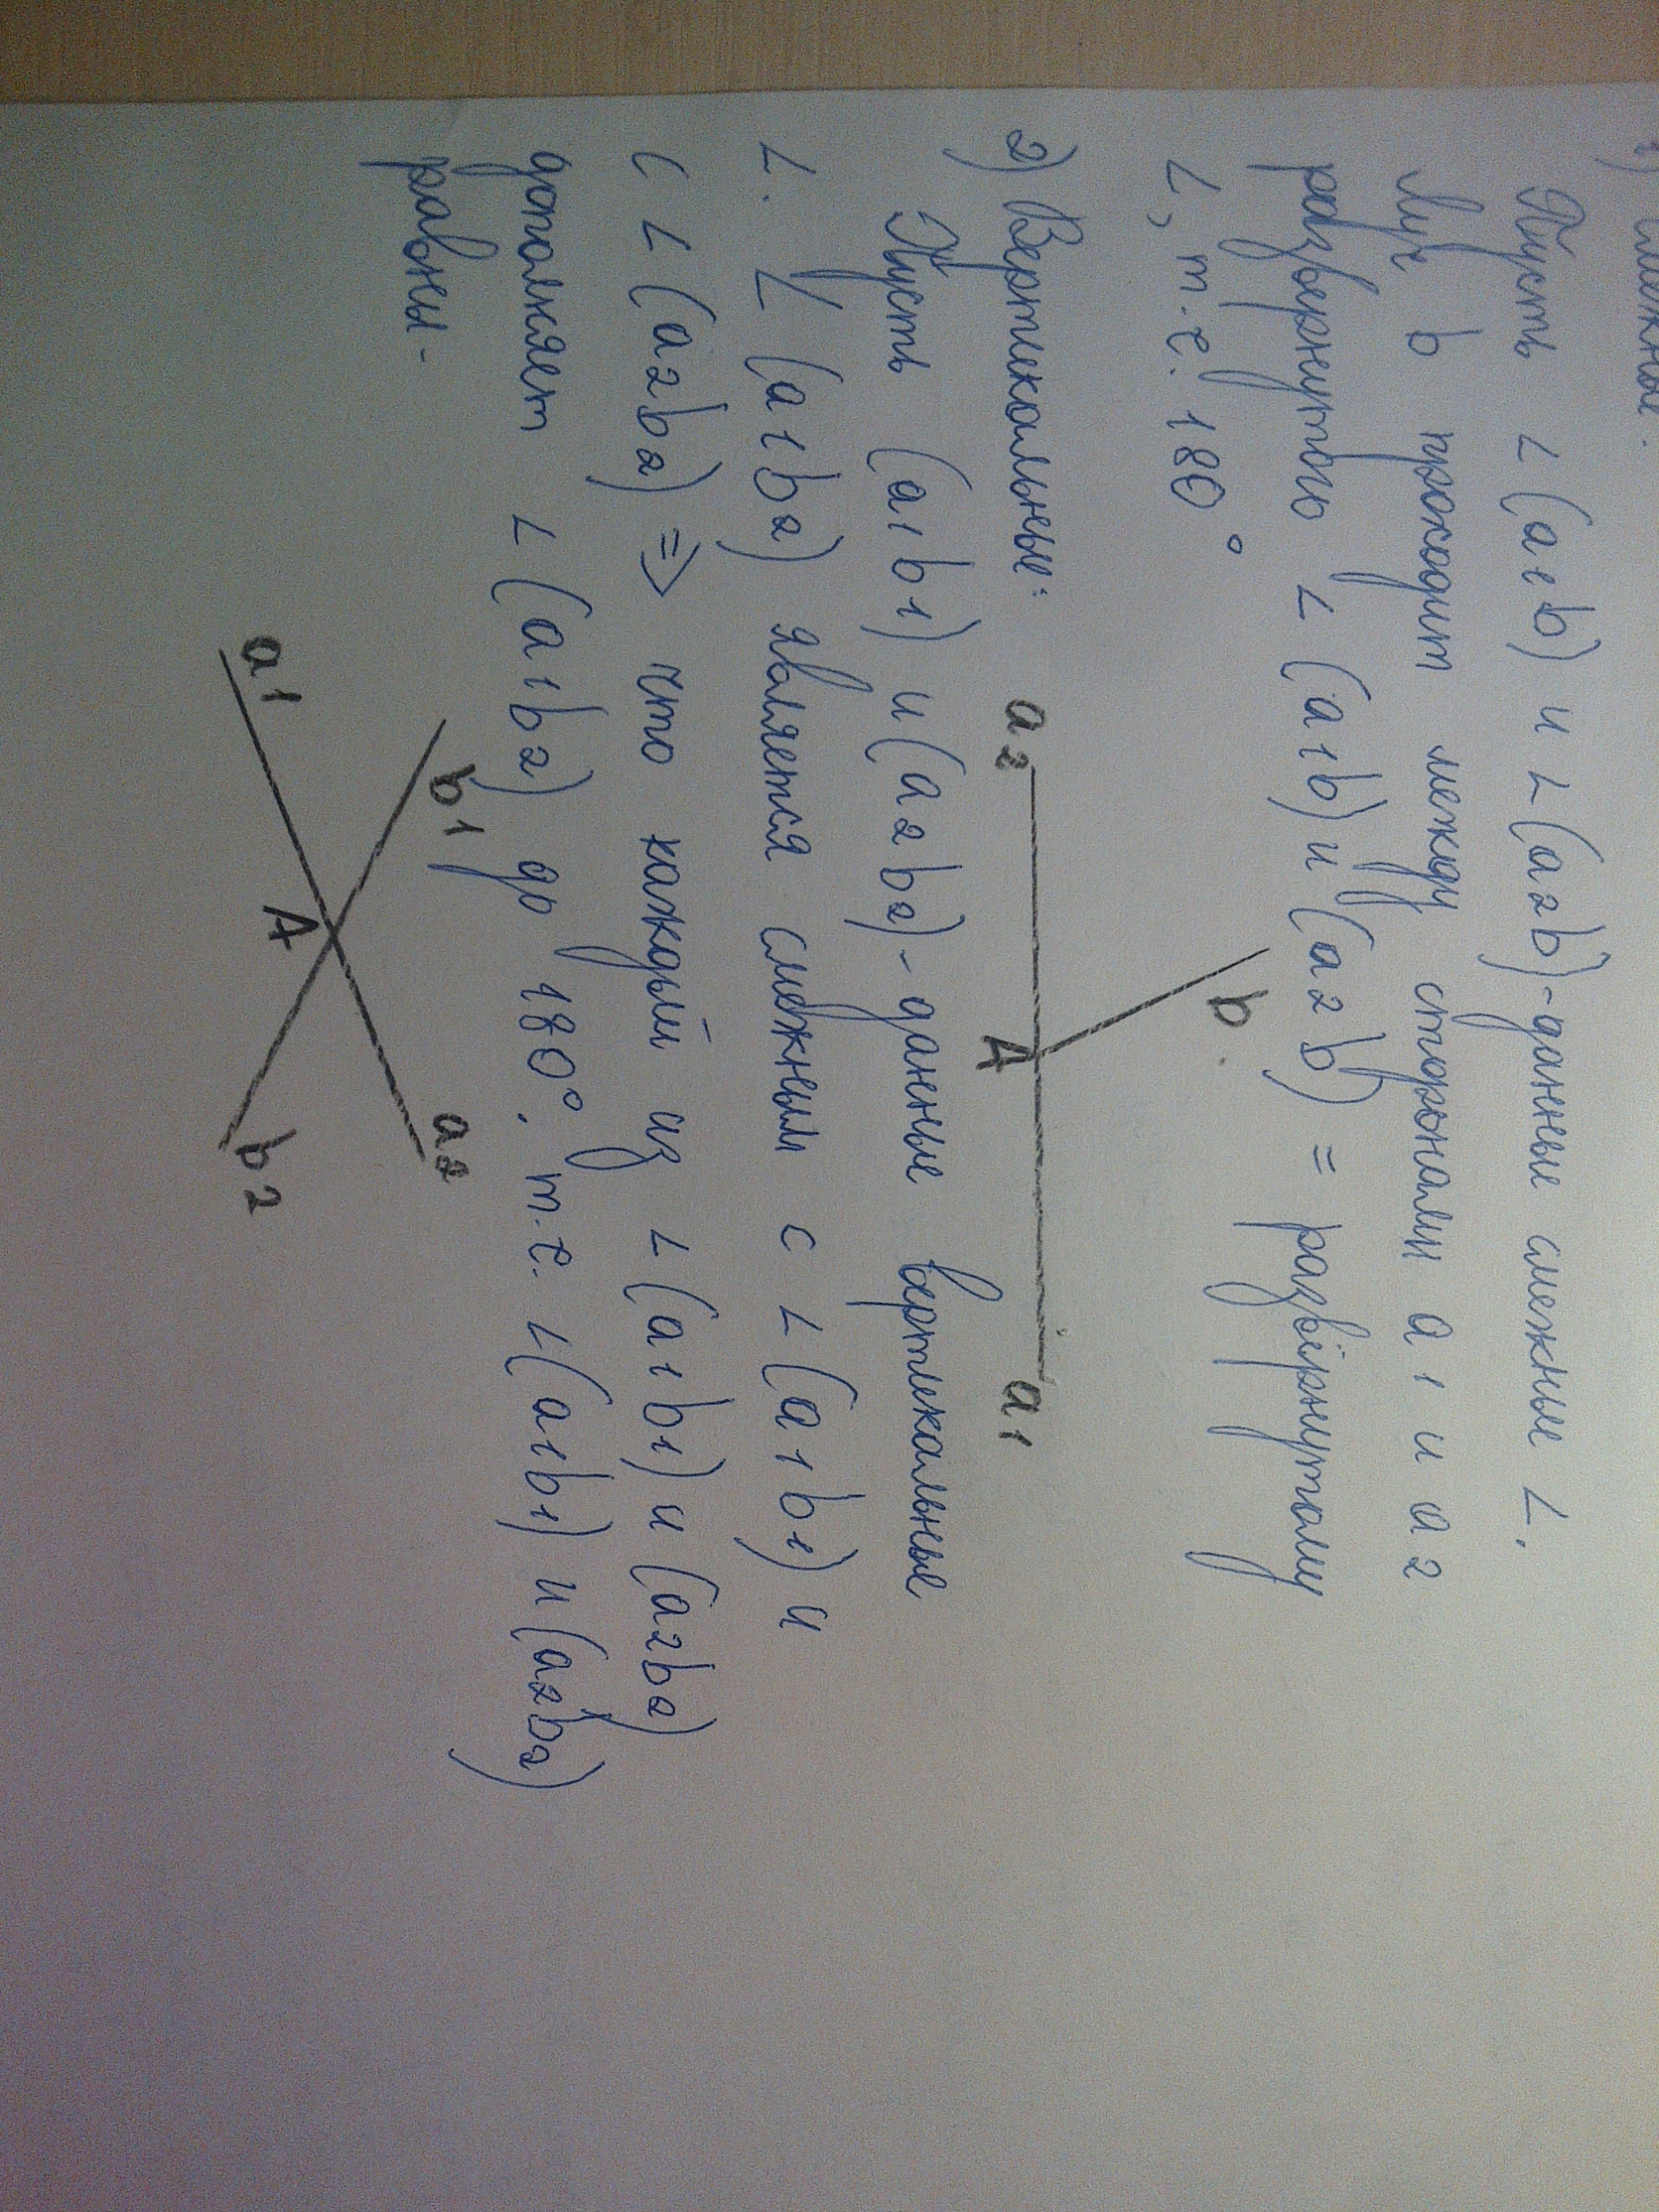 1) Смежные:
Пусть ∠(a1b) и ∠(a2b)-данные смежные ∠.
Луч b проходит между сторонами a1 и a2
развернутого ∠(a1b) и (a2b) = развёрнутому
∠, т.е. 180°
a2 A a1
b
2) Вертикальные:
Пусть (a1b1) и (a2b2)-данные вертекальные
∠. ∠(a1b2) является смежным с ∠(a1b1) и
с ∠(a2b2) => что каждый из ∠(a1b1) и (a2b2)
дополняет ∠(a1b2) до 180°. т.е. ∠(a1b1) и (a2b2)
равны.
b1 a2
A
a1 b2